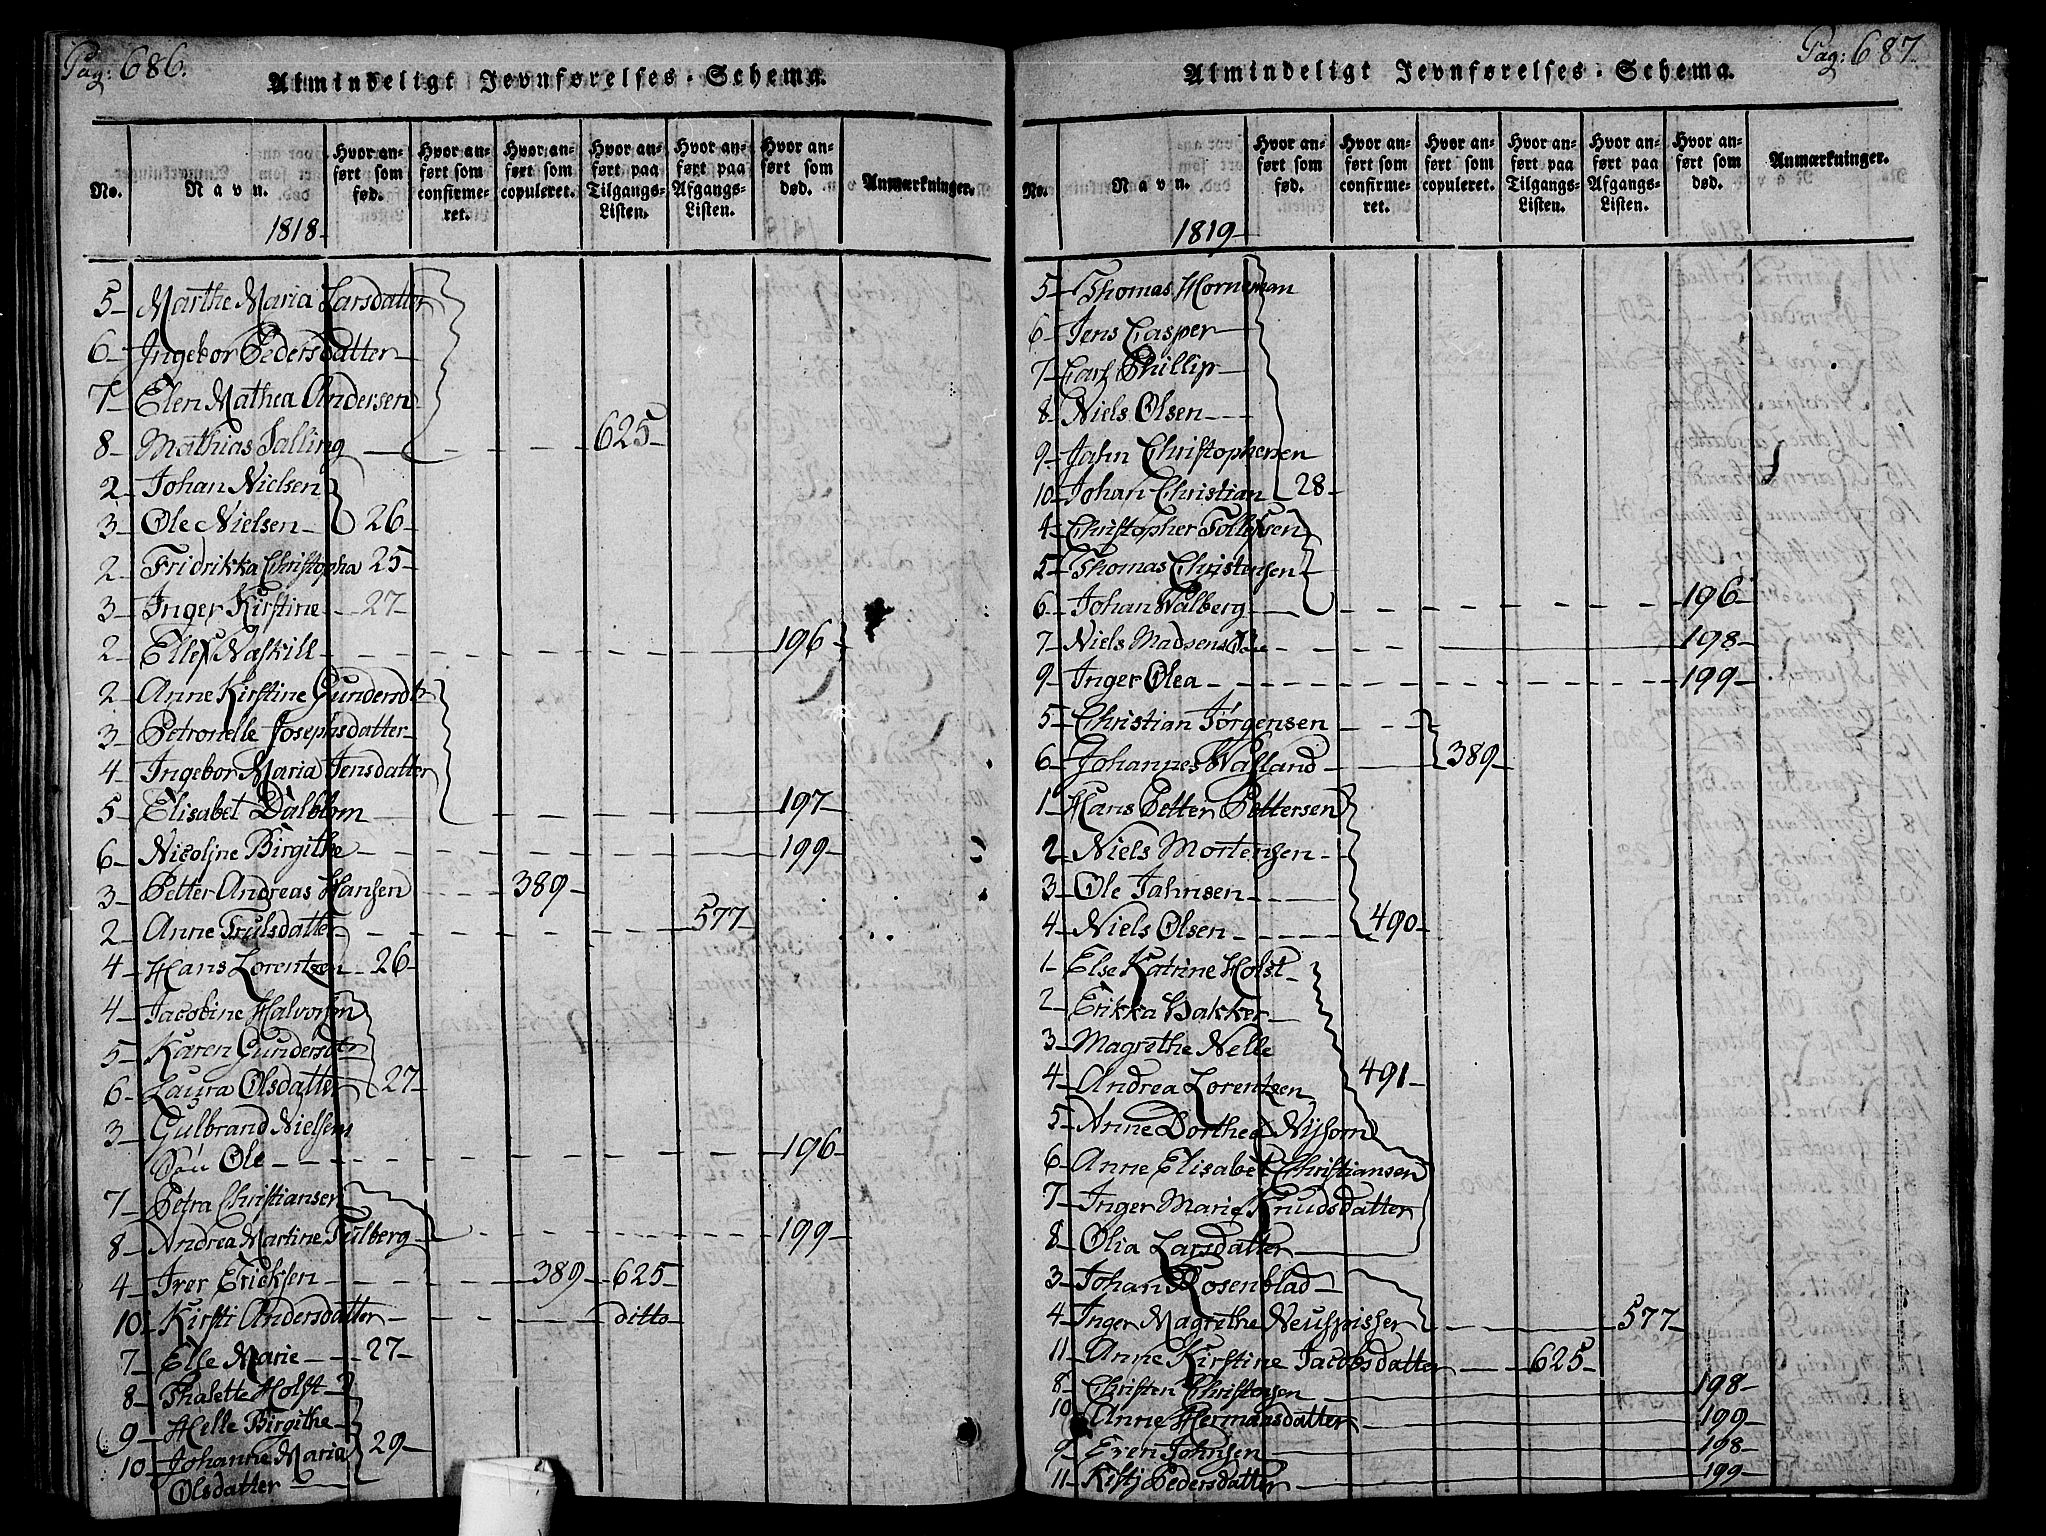 Pag: 686.
Almindeligt Jevnførelses-Schema.
No. Navn. Hvor anført som fød. Hvor anført som confirmeret. Hvor anført som copuleret. Hvor anført paa Tilgangs-Listen. Hvor anført paa Afgangs-Listen. Hvor anført som død. Anmærkninger.
1818-
5 Marthe Maria Larsdatter
6 Ingebor Pedersdatter
7 Elen Mathea Andersen
8 Mathias Salling 625
2 Johan Nielsen
3 Ole Nielsen 26
2 Fridrikka Christopha 25
3 Inger Kirstine 27
2 Næskill 196
2 Anne Kirstine Gundersdtr
3 Petronelle Josephsdatter
4 Ingebor Maria Jensdatter
5 Elisabet Dalblom 197
6 Nicoline Birgithe 199
3 Petter Andreas Hansen 389
2 Anne Trulsdatter 577
4 Hans Lorentzen 26
4 Jacobine Halvorsn
5 Karen Gundersdtr
6 Laura Olsdatter 27
3 Gulbrand Nielsens
Søn Ole 196
7 Petra Christiansen
8 Andrea Martine Fulberg 199
4 Iver Ericksen 389 625
10 Kirsti Andersdatter ditto
7 Else Marie 27
8 Thalette Holst
9 Helle Birgithe
10 Johanne Maria 29
Olsdatter
Pag: 687.
Almindeligt Jevnførelses-Schema.
No. Navn. Hvor anført som fød. Hvor anført som confirmeret. Hvor anført som copuleret. Hvor anført paa Tilgangs-Listen. Hvor anført paa Afgangs-Listen. Hvor anført som død. Anmærkninger.
1819-
5 Thomas Horneman
6 Jens Casper
7 Carl Phillip
8 Niels Olsen
9 Jahn Christophersen
10 Johan Christian 28
4 Christopher Tollefsen
5 Thomas Christensen
6 Johan Walberg 196
7 Niels Madsens 198
9 Inger Olea 199
5 Christian Jørgensen
6 Johannes Wasland 389
1 Hans Petter Pettersen
2 Niels Mortensen
3 Ole Jahnsen
4 Niels Olsen 490
1 Else Katrine Holst
2 Erikka Bakker
3 Magrethe Nelle
4 Andrea Lorentzen 491
5 Anne Dorthea Nysom
6 Anne Elisabet Christiansen
7 Inger Marie Knudsdatter
8 Olia Larsdatter
3 Johan Rosenblad
4 Inger Magrethe Neuspisser 577
11 Anne Kirstine Jacobsdatter 625
8 Christen Christensen 198
10 Anne Hermansdatter 199
9 Even Johnsen 198
11 Kisti Pedersdatter 199